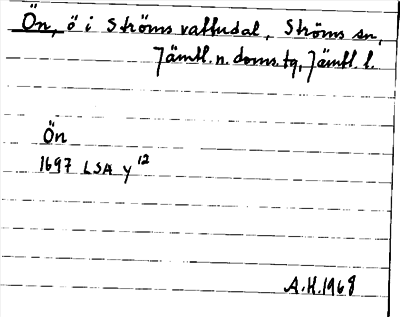 Ön, ö i Ströms vattudal, Ströms sn,
Jämtl. n. doms. tg, Jämtl. l.
Ön
1697 LSA y 12
A.H. 1968